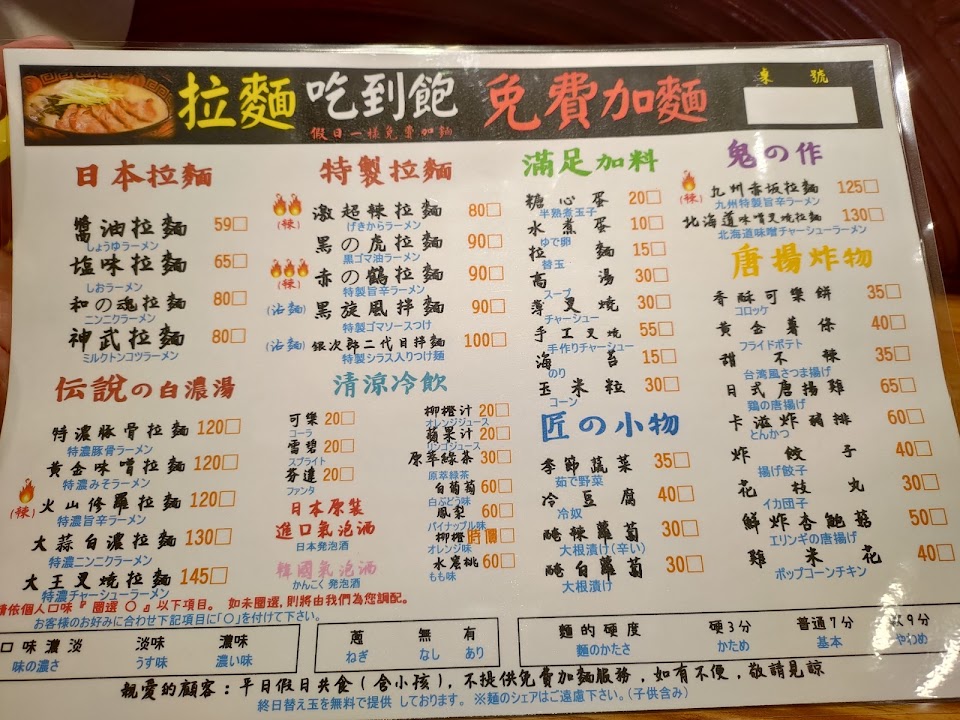 拉麵 吃到飽 免費加麵
桌號
假日一樣免費加麵
日本拉麵
醬油拉麵 59□
しょうゆラーメン
塩味拉麵 65□
しおラーメン
和の魂拉麵 80□
ニンニクラーメン
神武拉麵 80□
ミルクトンコツラーメン
伝説の白濃湯
特濃豚骨拉麵 120□
特濃豚骨ラーメン
黃金味噌拉麵 120□
特濃みそラーメン
(辣) 火山修羅拉麵 120□
特濃旨辛ラーメン
大蒜白濃拉麵 130□
特濃ニンニクラーメン
大王叉燒拉麵 145□
特濃チャーシューラーメン
特製拉麵
(辣) 激超辣拉麵 80□
げきからラーメン
黒の虎拉麵 90□
黒ゴマ油ラーメン
(辣) 赤の鶴拉麵 90□
特製旨辛ラーメン
(沾麵) 黑旋風拌麵 90□
特製ゴマソースつけ
(沾麵) 銀次郎二代目拌麵 100□
特製シラス入りつけ麵
清涼冷飲
可樂 20□
コーラ
雪碧 20□
スプライト
芬達 20□
ファンタ
日本原裝
進口氣泡酒
日本発泡酒
韓國氣泡酒
かんこく発泡酒
柳橙汁 20□
オレンジジュース
蘋果汁 20□
リンゴジュース
原萃綠茶 30□
原萃緑茶
白葡萄 60□
白ぶどう味
鳳梨 60□
パイナップル味
柳橙
オレンジ味
水蜜桃 60□
もも味
滿足加料
糖心蛋 20□
半熟煮玉子
水煮蛋 10□
ゆで卵
拉麵 15□
替玉
高湯 30□
スープ
薄叉燒 30□
チャーシュー
手工叉燒 55□
手作りチャーシュー
海苔 15□
のり
玉米粒 30□
コーン
匠の小物
季節蔬菜 35□
茹で野菜
冷豆腐 40□
冷奴
醃辣蘿蔔 30□
大根漬け(辛い)
醃白蘿蔔 30□
大根漬け
鬼の作
(辣) 九州赤坂拉麵 125□
九州特製旨辛ラーメン
北海道味噌叉燒拉麵 130□
北海道味噌チャーシューラーメン
唐揚炸物
香酥可樂餅 35□
コロッケ
黃金薯條 40□
フライドポテト
甜不辣 35□
台湾風さつま揚げ
日式唐揚雞 65□
鶏の唐揚げ
卡滋炸豬排 60□
とんかつ
炸餃子 40□
揚げ餃子
花枝丸 30□
イカ団子
鮮炸杏鮑菇 50□
エリンギの唐揚げ
雞米花 40□
ポップコーンチキン
請依個人口味『圈選 〇 』以下項目。 如未圈選,則將由我們為您調配。
お客様のお好みに合わせ下記項目に「〇」を付けて下さい。
口味濃淡 淡味 濃味
味の濃さ うす味 濃い味
蔥 無 有
ねぎ なし あり
麵的硬度 硬3分 普通7分 軟9分
麵のかたさ かため 基本 やわめ
親愛的顧客：平日假日共食(含小孩)，不提供免費加麵服務，如有不便，敬請見諒
終日替え玉を無料で提供 しております。 ※麵のシェアはご遠慮下さい。(子供含み)